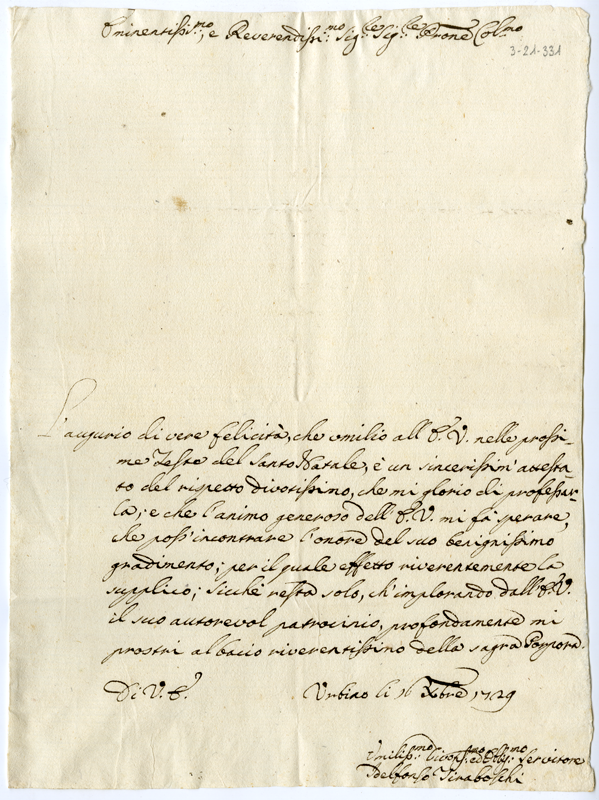 Eminentissi:mo, e Reverendissi:mo Sig:re Sig:re Prone Col:mo
3-21-331
L'augurio di vere felicità, che umilio all'E.V. nelle prossi-
me Feste del Santo Natale, è un sincerissim' attesta
to del rispetto divotissimo, che mi glorio di professar-
la; e che l'animo generoso dell'E.V. mi fà sperare,
che poss' incontrare l'onore del suo benignissimo
gradimento; per il quale effetto riverentemente la
supplico; sicchè resta solo, ch'implorando dall'E.V.
il suo autorevol patrocinio, profondamente mi
prostri al bacio riverentissimo della sagra Porpora.
Di V.E.
Urbino li 16 Xbre 1729
Umiliss:mo Divotiss:mo ed Obblig:mo Servitore
Idelfonso Tiraboschi